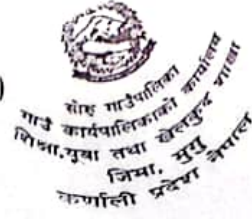 सोरु गाउँपालिका
गाउँ कार्यपालिकाको कार्यालय
शिक्षा, युवा तथा खेलकुद शाखा
जिमा, मुगु
कर्णाली प्रदेश नेपाल